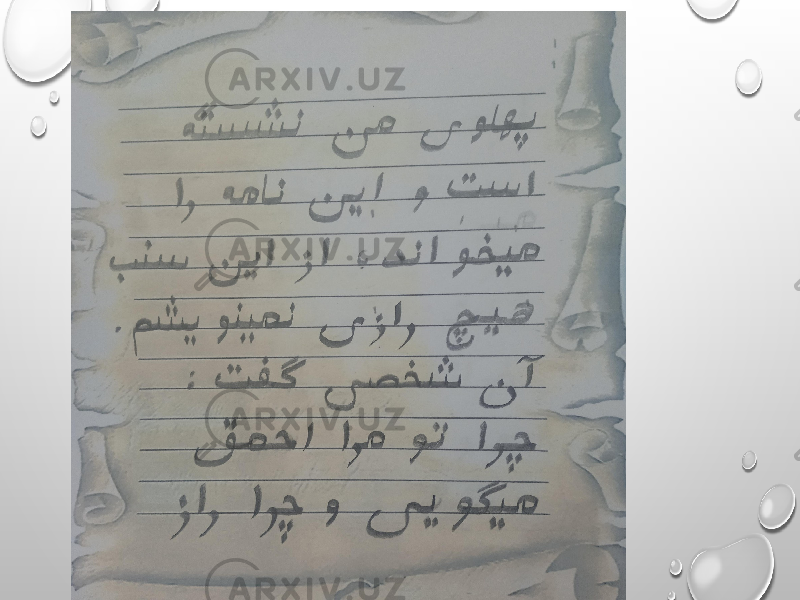 ARXIV.UZ
پهلوی من نشسته
است و این نامه را
میخواند از این سنب
ARXIV.UZ
هیچ رازی نمینویشم.
آن شخصی گفت:
ARXIV.UZ
چرا تو مرا احمق
میگویی و چرا راز
ARXIV.UZ